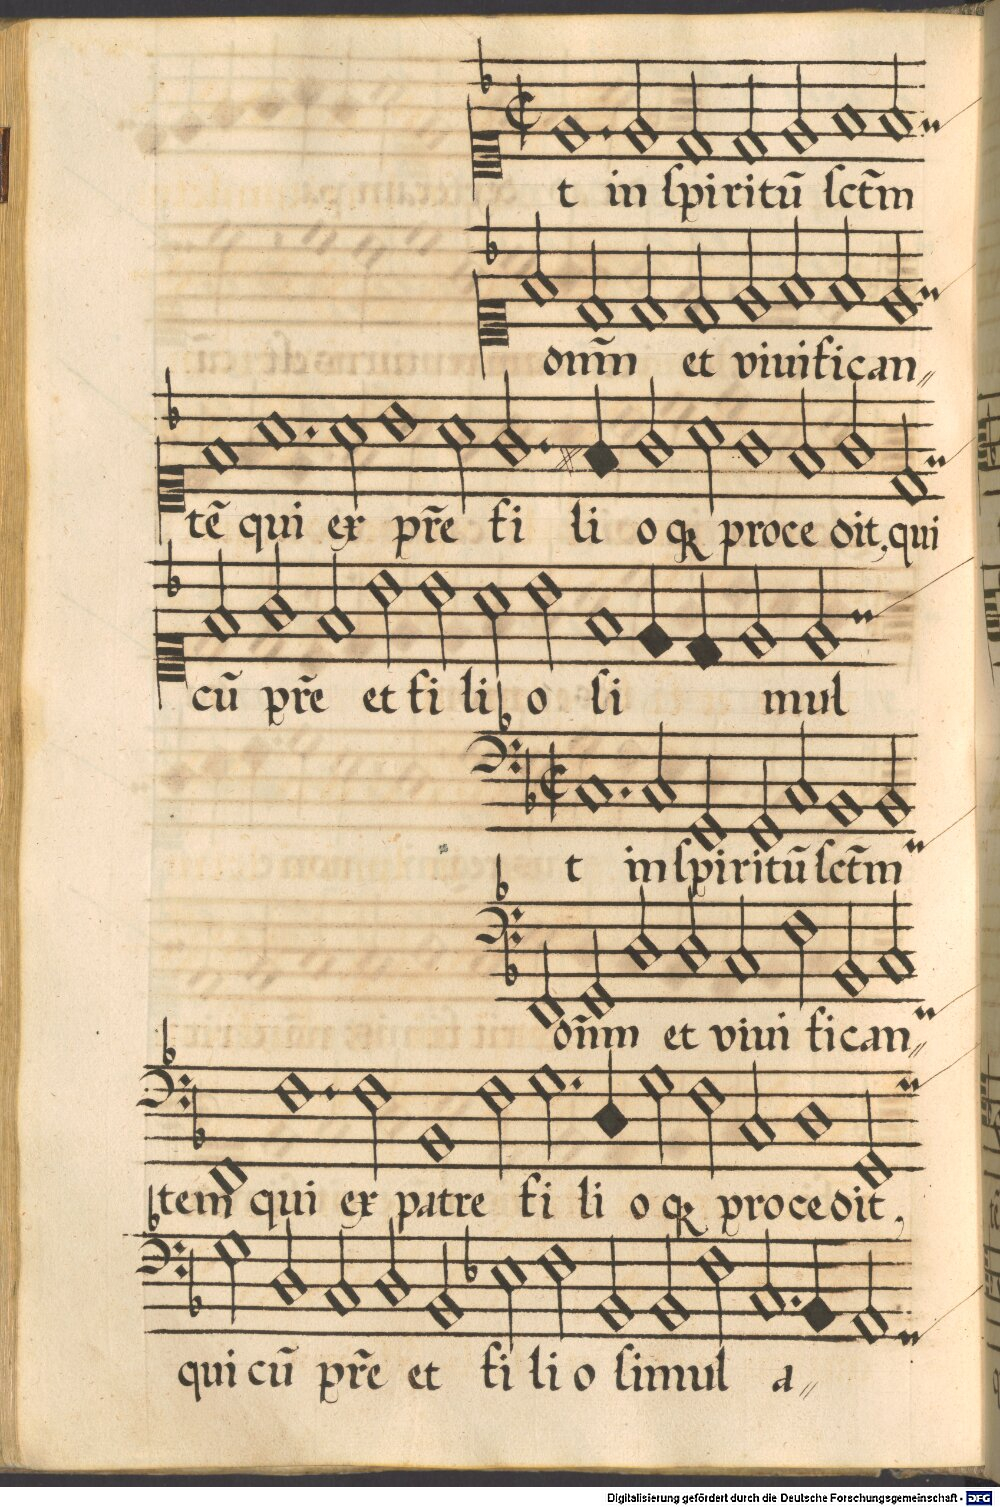 t in spiritū sctm̄
dnm̄ et vivifican〃
tē qui ex pr̄e fi li o qȝ proce dit, qui
cū pr̄e et fi li o si mul
t in spiritū sctm̄
dnm̄ et vivi fican〃
tem qui ex patre fi li o qȝ procedit,
qui cū pr̄e et fi li o simul a〃
Digitalisierung gefördert durch die Deutsche Forschungsgemeinschaft - DFG